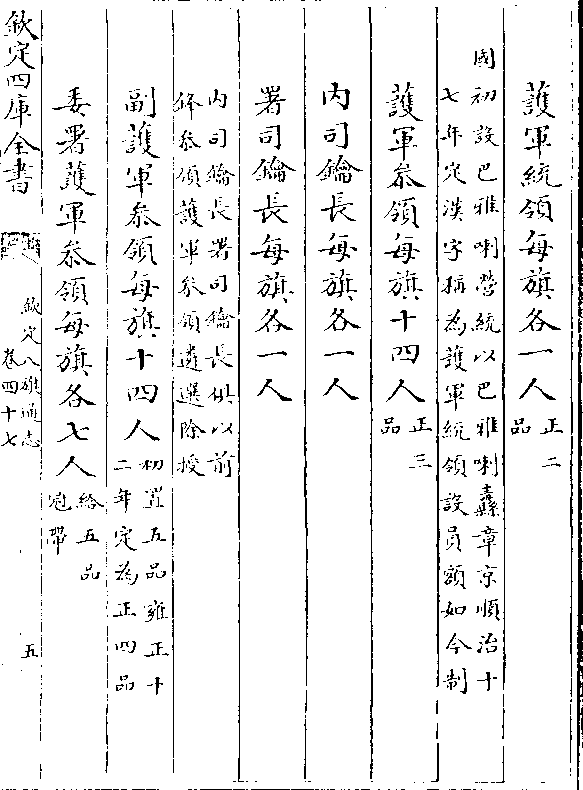 護軍統領每旗各一人正二品
國初設巴雅喇營統以巴雅喇纛章京順治十
七年定漢字稱為護軍統領設員額如今制
護軍叅領每旗十四人正三品
内司鑰長每旗各一人
署司鑰長每旗各一人
内司鑰長署司鑰長俱以前
鋒叅領護軍叅領遴選除授
副護軍叅領每旗十四人初置五品雍正十二年定為正四品
委署護軍叅領每旗各七人給五品冠帶
欽定四庫全書
欽定八旗通志
卷四十七
五